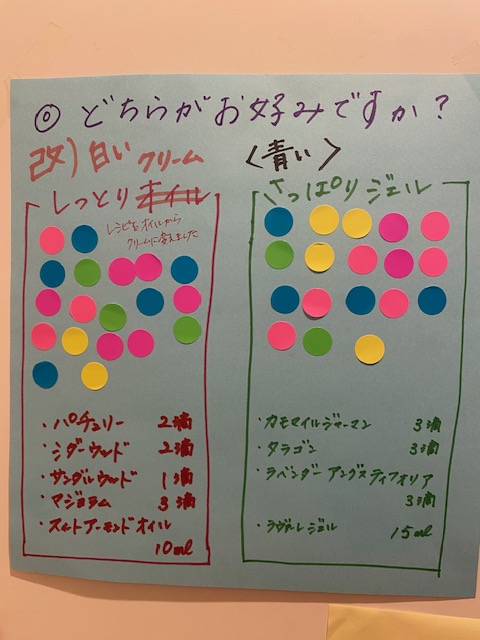 ◎ どちらがお好みですか？
改) 白い クリーム
しっとり オイル
レシピをオイルから
クリームに変えました
・パチュリー 2滴
・シダーウッド 2滴
・サンダルウッド 1滴
・マジョラム 3滴
・スイートアーモンドオイル
10ml
<青い>
さっぱり ジェル
・カモマイルジャーマン 3滴
・タラゴン 3滴
・ラベンダーアングスティフォリア
3滴
・ラヴァーレジェル 15ml